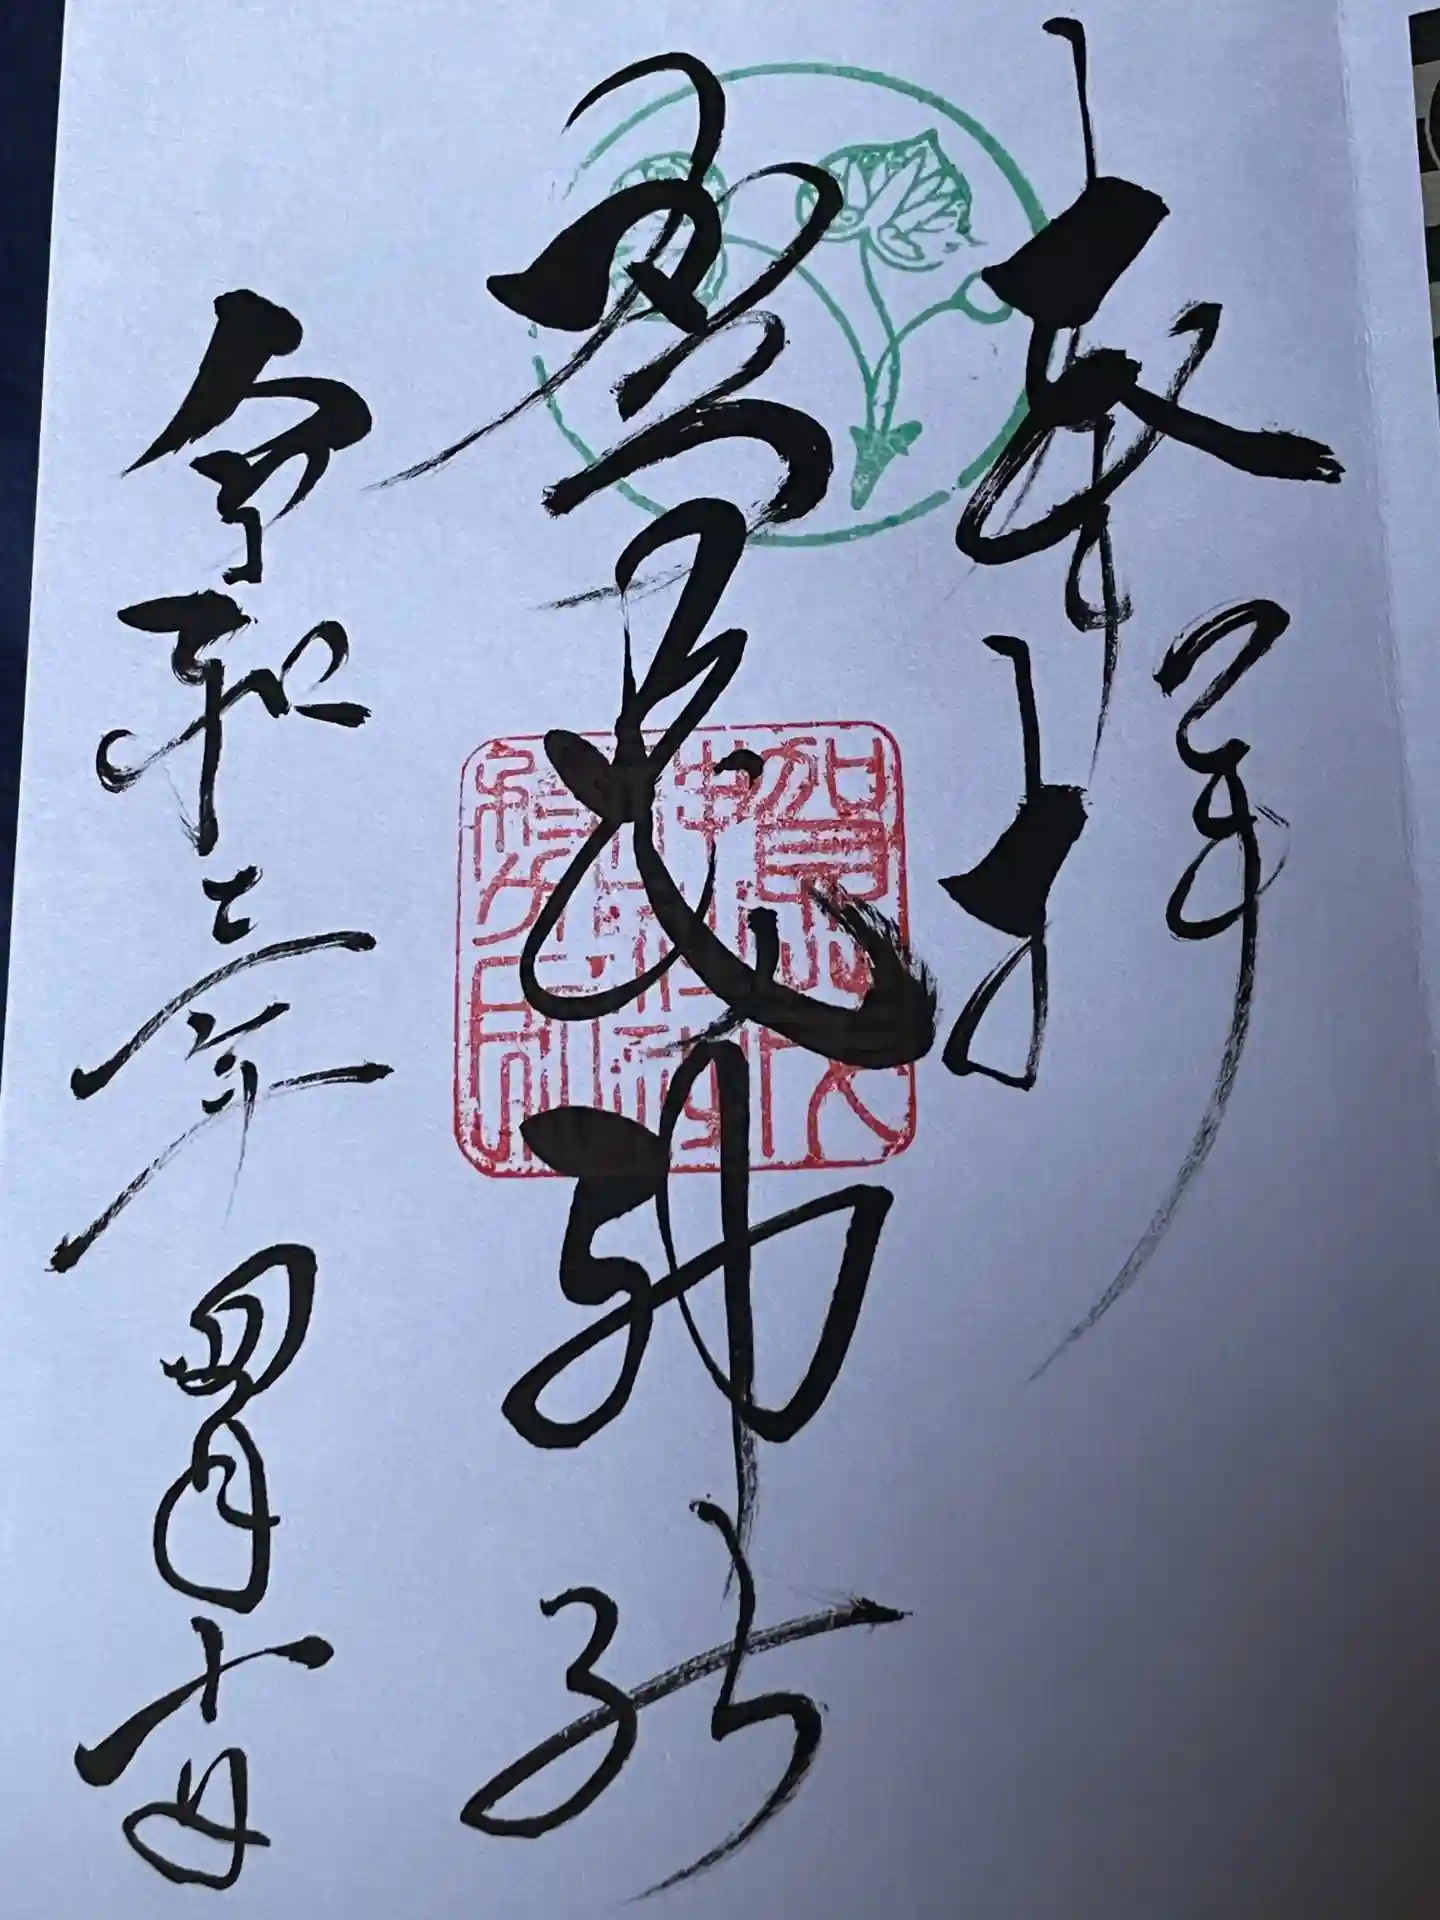 奉拝
賀茂神社
令和三年四月十一日